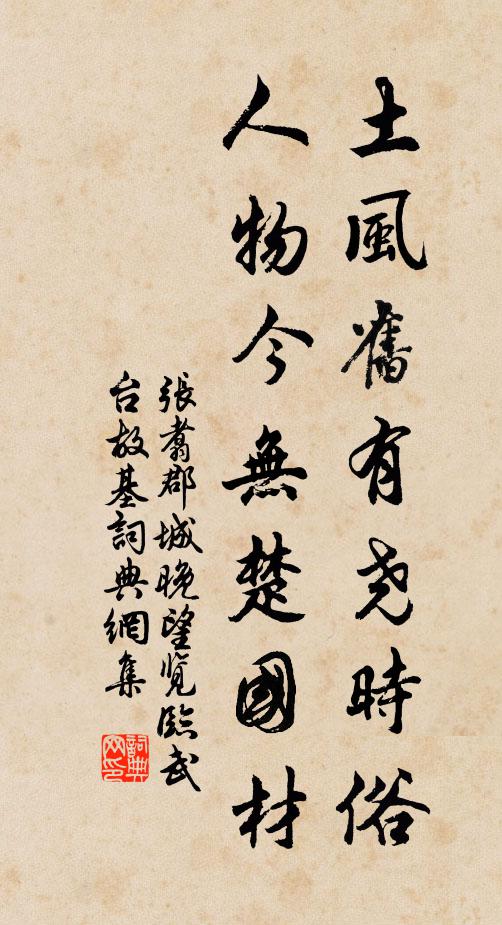 土風舊有尧時俗
人物今無楚國材
張翥郡城晚望覽臨武
台故基詞典網集
詞典
网印